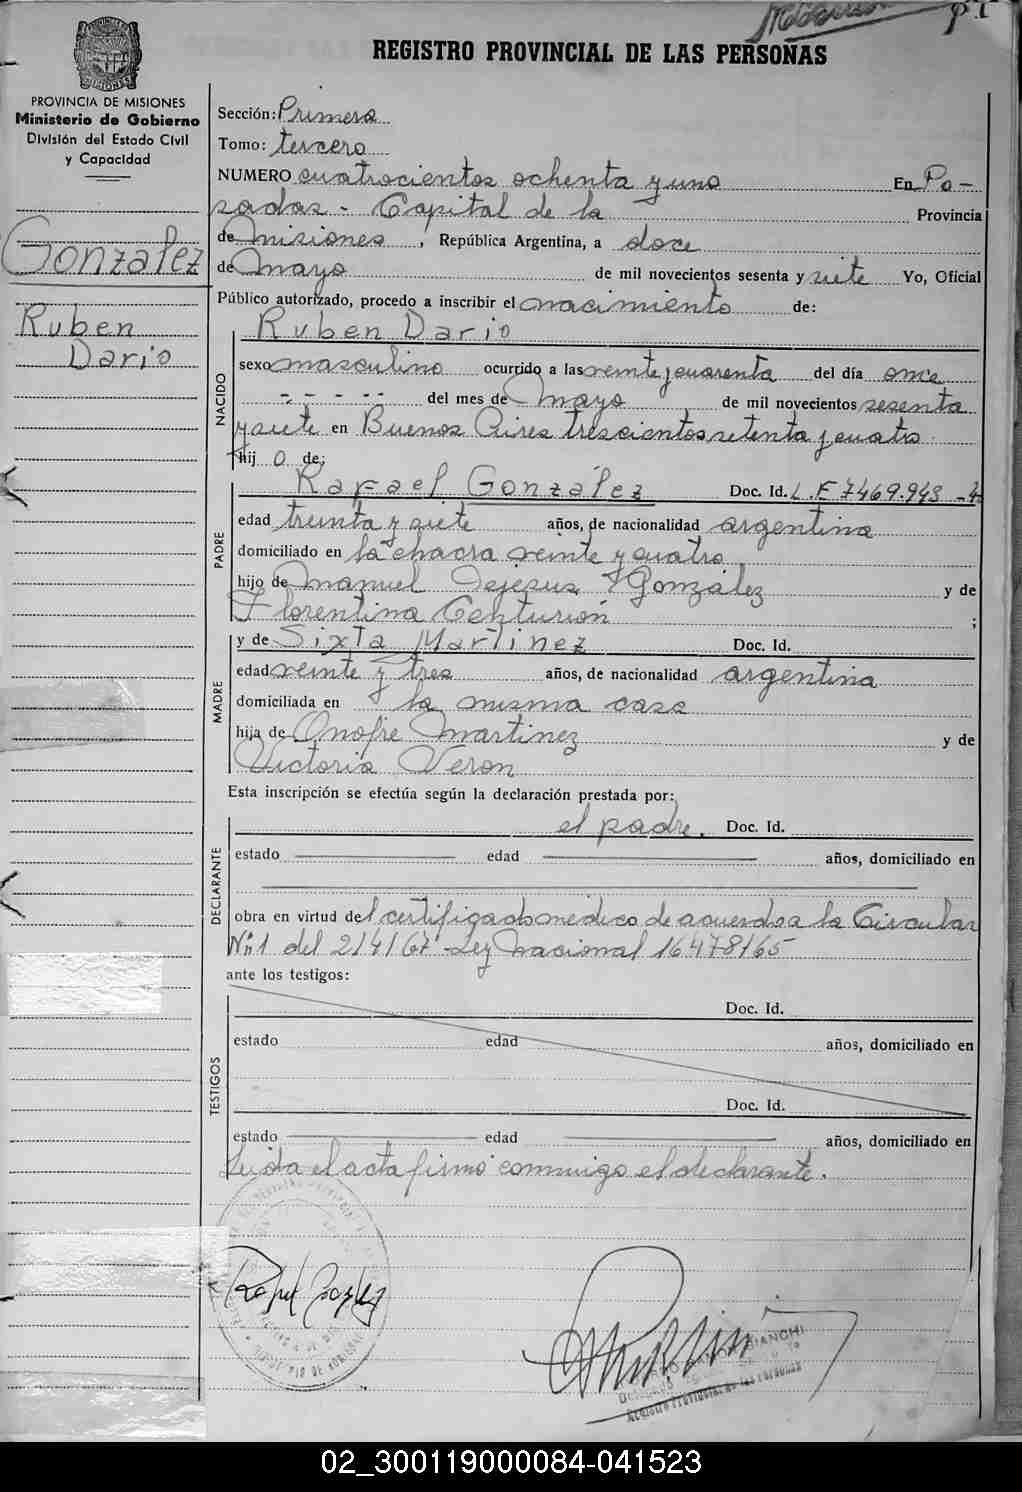 REGISTRO PROVINCIAL DE LAS PERSONAS
PROVINCIA DE MISIONES
Ministerio de Gobierno
División del Estado Civil
y Capacidad
Gonzalez
Ruben
Dario
Sección: Primera
Tomo: tercero
NUMERO cuatrocientos ochenta y uno En Po-
sadas - Capital de la Provincia
de Misiones, República Argentina, a doce
de Mayo de mil novecientos sesenta y siete Yo, Oficial
Público autorizado, procedo a inscribir el nacimiento de:
Ruben Dario
NACIDO
sexo masculino ocurrido a las veinte y cuarenta del día once
del mes de Mayo de mil novecientos sesenta
y siete en Buenos Aires trescientos setenta y cuatro.
hij o de:
PADRE
Rafael Gonzalez Doc. Id. L.E 7469.943
edad treinta y siete años, de nacionalidad argentina
domiciliado en la chacra veinte y cuatro
hijo de Manuel Dejesus Gonzalez y de
Florentina Centurión ;
MADRE
y de Sixta Martinez Doc. Id.
edad veinte y tres años, de nacionalidad argentina
domiciliada en la misma casa
hija de Onofre Martinez y de
Victoria Veron
Esta inscripción se efectúa según la declaración prestada por:
DECLARANTE
el padre. Doc. Id.
estado edad años, domiciliado en
obra en virtud del certificado médico de acuerdo a la Circular
Nº1 del 2/4/67 Ley Nacional 16478/65
ante los testigos:
TESTIGOS
Doc. Id.
estado edad años, domiciliado en
Doc. Id.
estado edad años, domiciliado en
Leida el acta firmó conmigo el declarante.
Rafael Gonzalez
BIANCHI
Registro Provincial de las Personas
02_300119000084-041523